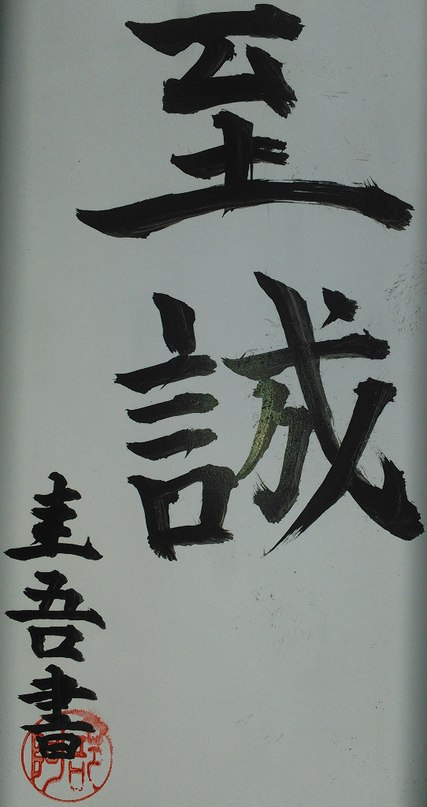 至誠
圭吾書